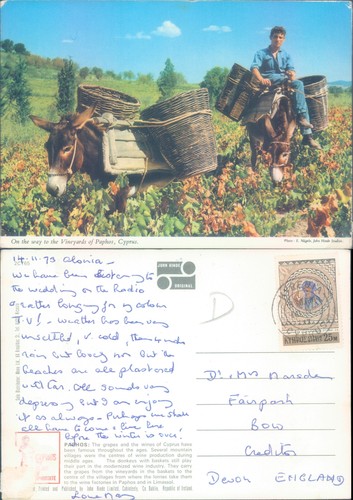 On the way to the Vineyards of Paphos, Cyprus.
Photo: E. Nägele, John Hinde Studios.
14.11.73
We have been listening to
the wedding on the Radio
rather longing for a colour
T.V! – Weather has been very
unsettled, v. cold, then
rain but lovely now but the
beaches are all plastered
with tar. All sounds very
depressing but I am enjoying
it as always – Perhaps we shall
all have to come & live here
before the winter is over!
JOHN HINDE
ORIGINAL
Dr. & Mrs Marsden
Fairposh
Bow
Crediton
Devon ENGLAND
PAPHOS: The grapes and the wines of Cyprus have
been famous throughout the ages. Several mountain
villages were the centres of wine production during
middle ages. The donkeys with baskets still play
their part in the modernised wine industry. They carry
the grapes from the vineyards in the baskets to the
centre of the villages from where the lorries take them
to the wine factories in Paphos and in Limassol.